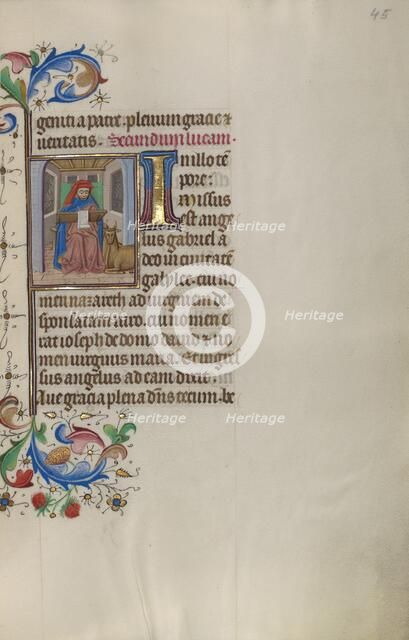 45
geniti a patre. plenum gracie et
ueritatis. Secundum lucam.
In illo tē
pore:
Missus
est ange
lus gabriel a
deo in ciuitatē
galylee. cui no
men nazareth ad uirginem de
sponsatam uiro. cui nomen e
rat ioseph de domo dauid et no
men uirginis maria. Et ingres
sus angelus ad eam dixit.
Aue gracia plena dn̄s tecum. be
Heritage
Heritage
Heritage
Heritage
Heritage
Heritage